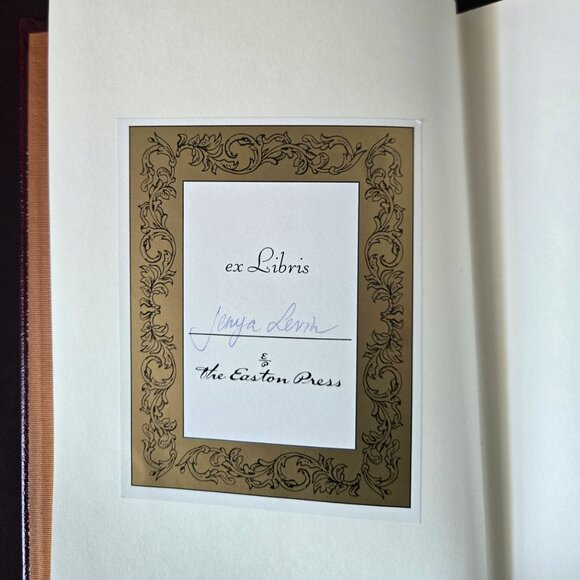 ex Libris
Jenya Levin
E
P
the Easton Press